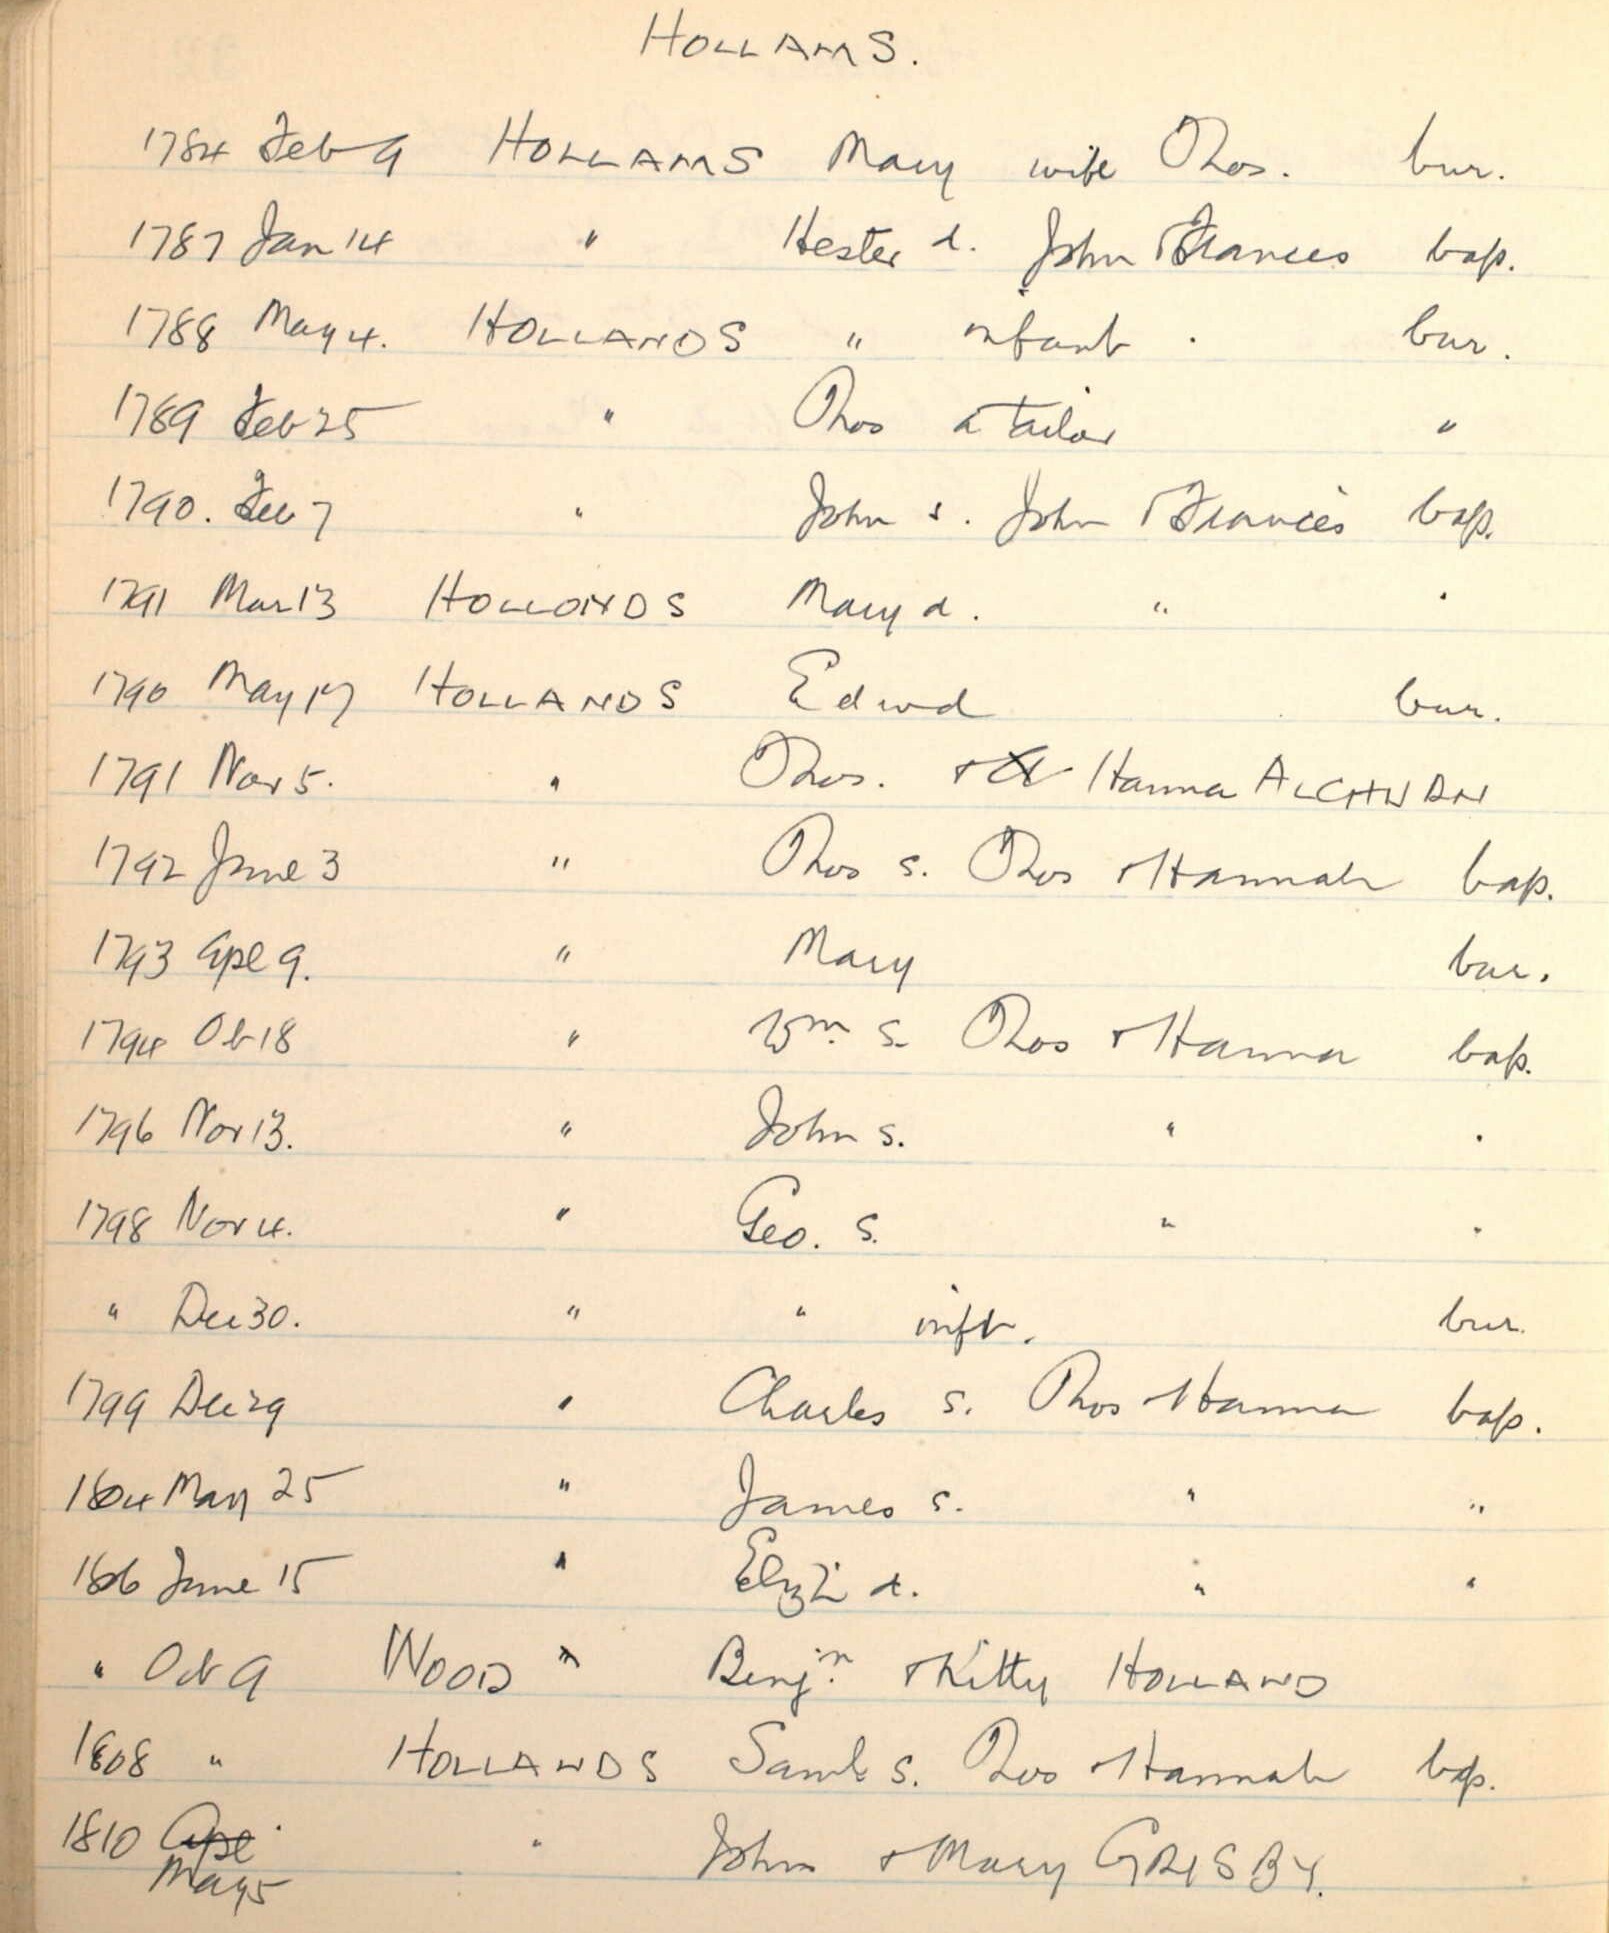 HOLLAMS.
1784 Feb 9 HOLLAMS Mary wife Thos. bur.
1787 Jan 14 " Hester d. John & Frances bap.
1788 May 4. HOLLANDS " infant . bur.
1789 Feb 25 " Thos a Tailor "
1790. Feb 7 " John s. John & Frances bap.
1791 Mar 13 HOLLONDS Mary d. " "
1790 May 17 HOLLANDS Edwd bur.
1791 Nov 5. " Thos. & Hanna
1792 June 3 " Thos s. Thos & Hannah bap.
1793 Apl 9. " Mary bur.
1794 Oct 18 " Wm. s. Thos & Hanna bap.
1796 Nov 13. " John s. " "
1798 Nov 4. " Geo. s. " "
" Dec 30. " " inft. bur.
1799 Dec 29 " Charles s. Thos & Hanna bap.
1804 May 25 " James s. " "
1806 June 15 " Elizth d. " "
" Oct 9 WOOD " Benjn. & Kitty HOLLAND
1808 " HOLLANDS Saml s. Thos & Hannah bap.
1810 Apl " John & Mary GRISBY.
May 5